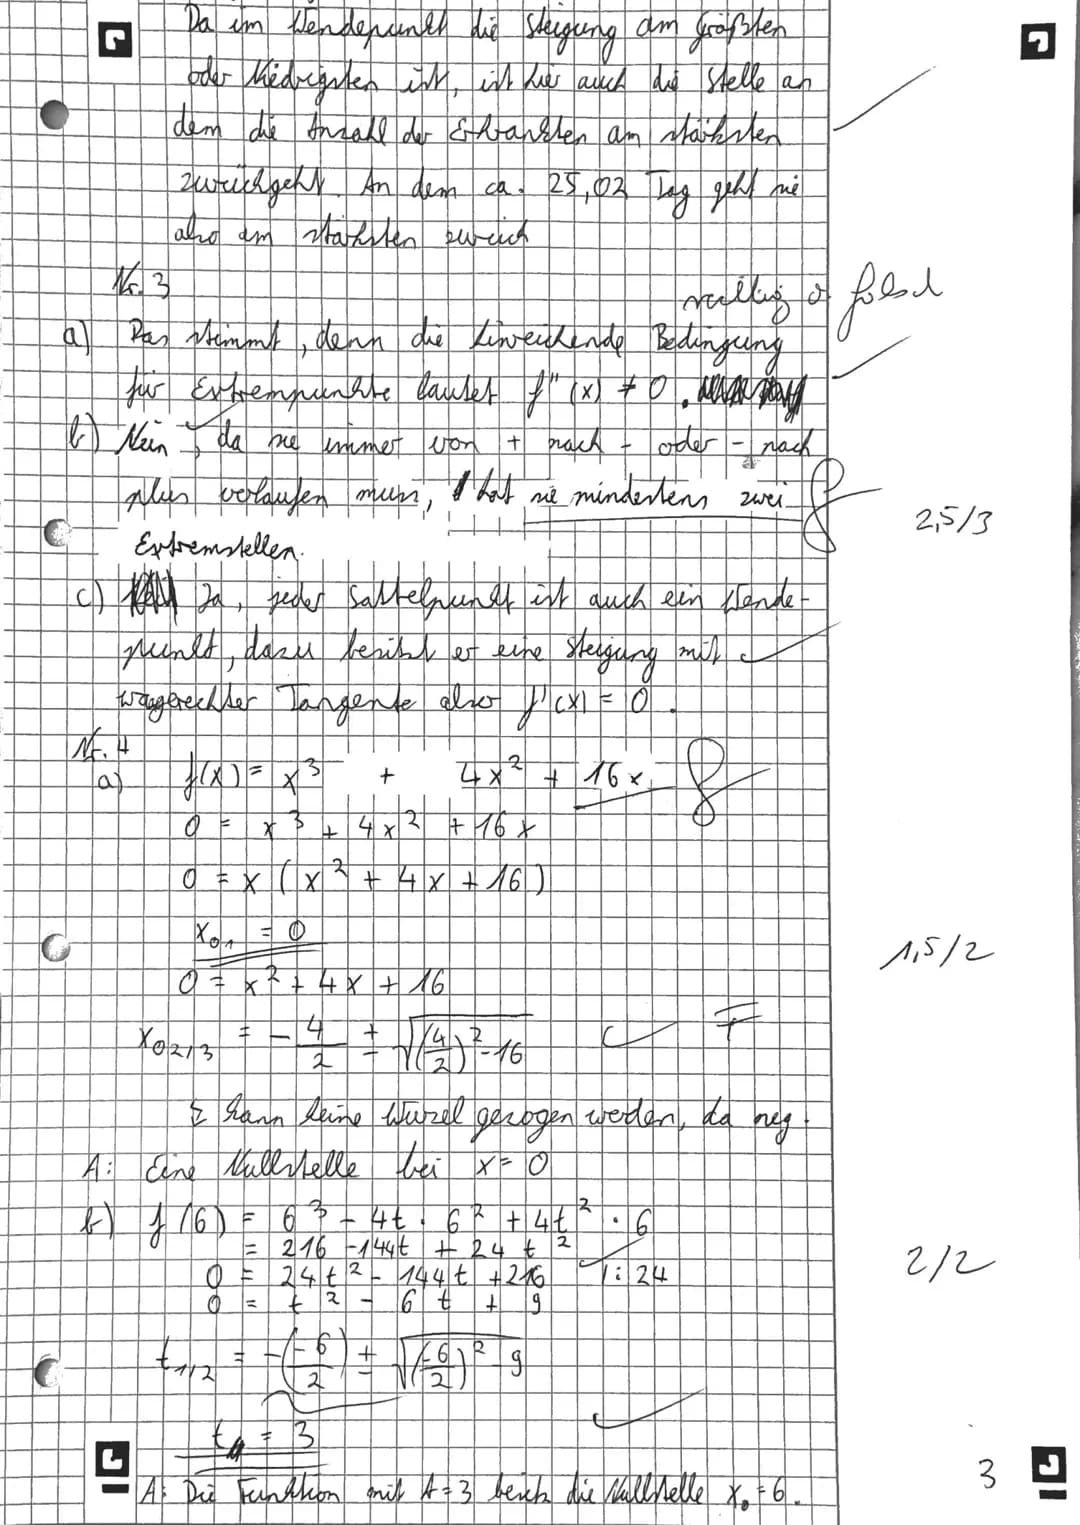 Da im Wendepunkt die Steigung am größten
oder Niedrigsten ist, ist hier auch die Stelle an
dem die Anzahl der Erkrankten am stärksten
zurückgeht. An dem ca. 25,02 Tag geht sie
also am stärksten zurück
Nr. 3
falsch
a) Das stimmt, denn die hinreichende Bedingung
für Extrempunkte lautet f''(x) ≠ 0.
b) Nein, da sie immer von + nach - oder - nach
plus verlaufen muss, hat sie mindestens zwei f
2,5/3
Extremstellen.
c) Ja, jeder Sattelpunkt ist auch ein Wende-
punkt, dazu besitzt er eine Steigung mit
waagerechter Tangente also f'(x) = 0.
Nr. 4
a) f(x) = x³ + 4x² + 16x f
0 = x³ + 4x² + 16x
0 = x (x² + 4x + 16)
x₀₁ = 0
1,5/2
0 = x² + 4x + 16
x₀₂/₃ = - 4/2 ± √((4/2)² - 16) F
↯ kann keine Wurzel gezogen werden, da neg.
A: Eine Nullstelle bei x = 0
b) f(6) = 6³ - 4t · 6² + 4t² · 6
= 216 - 144t + 24t²
2/2
0 = 24t² - 144t + 216 |:24
0 = t² - 6t + 9
t₁/₂ = -(-6/2) ± √((-6/2)² - 9)
t = 3
3
A: Die Funktion mit t = 3 besitz die Nullstelle x₀ = 6.